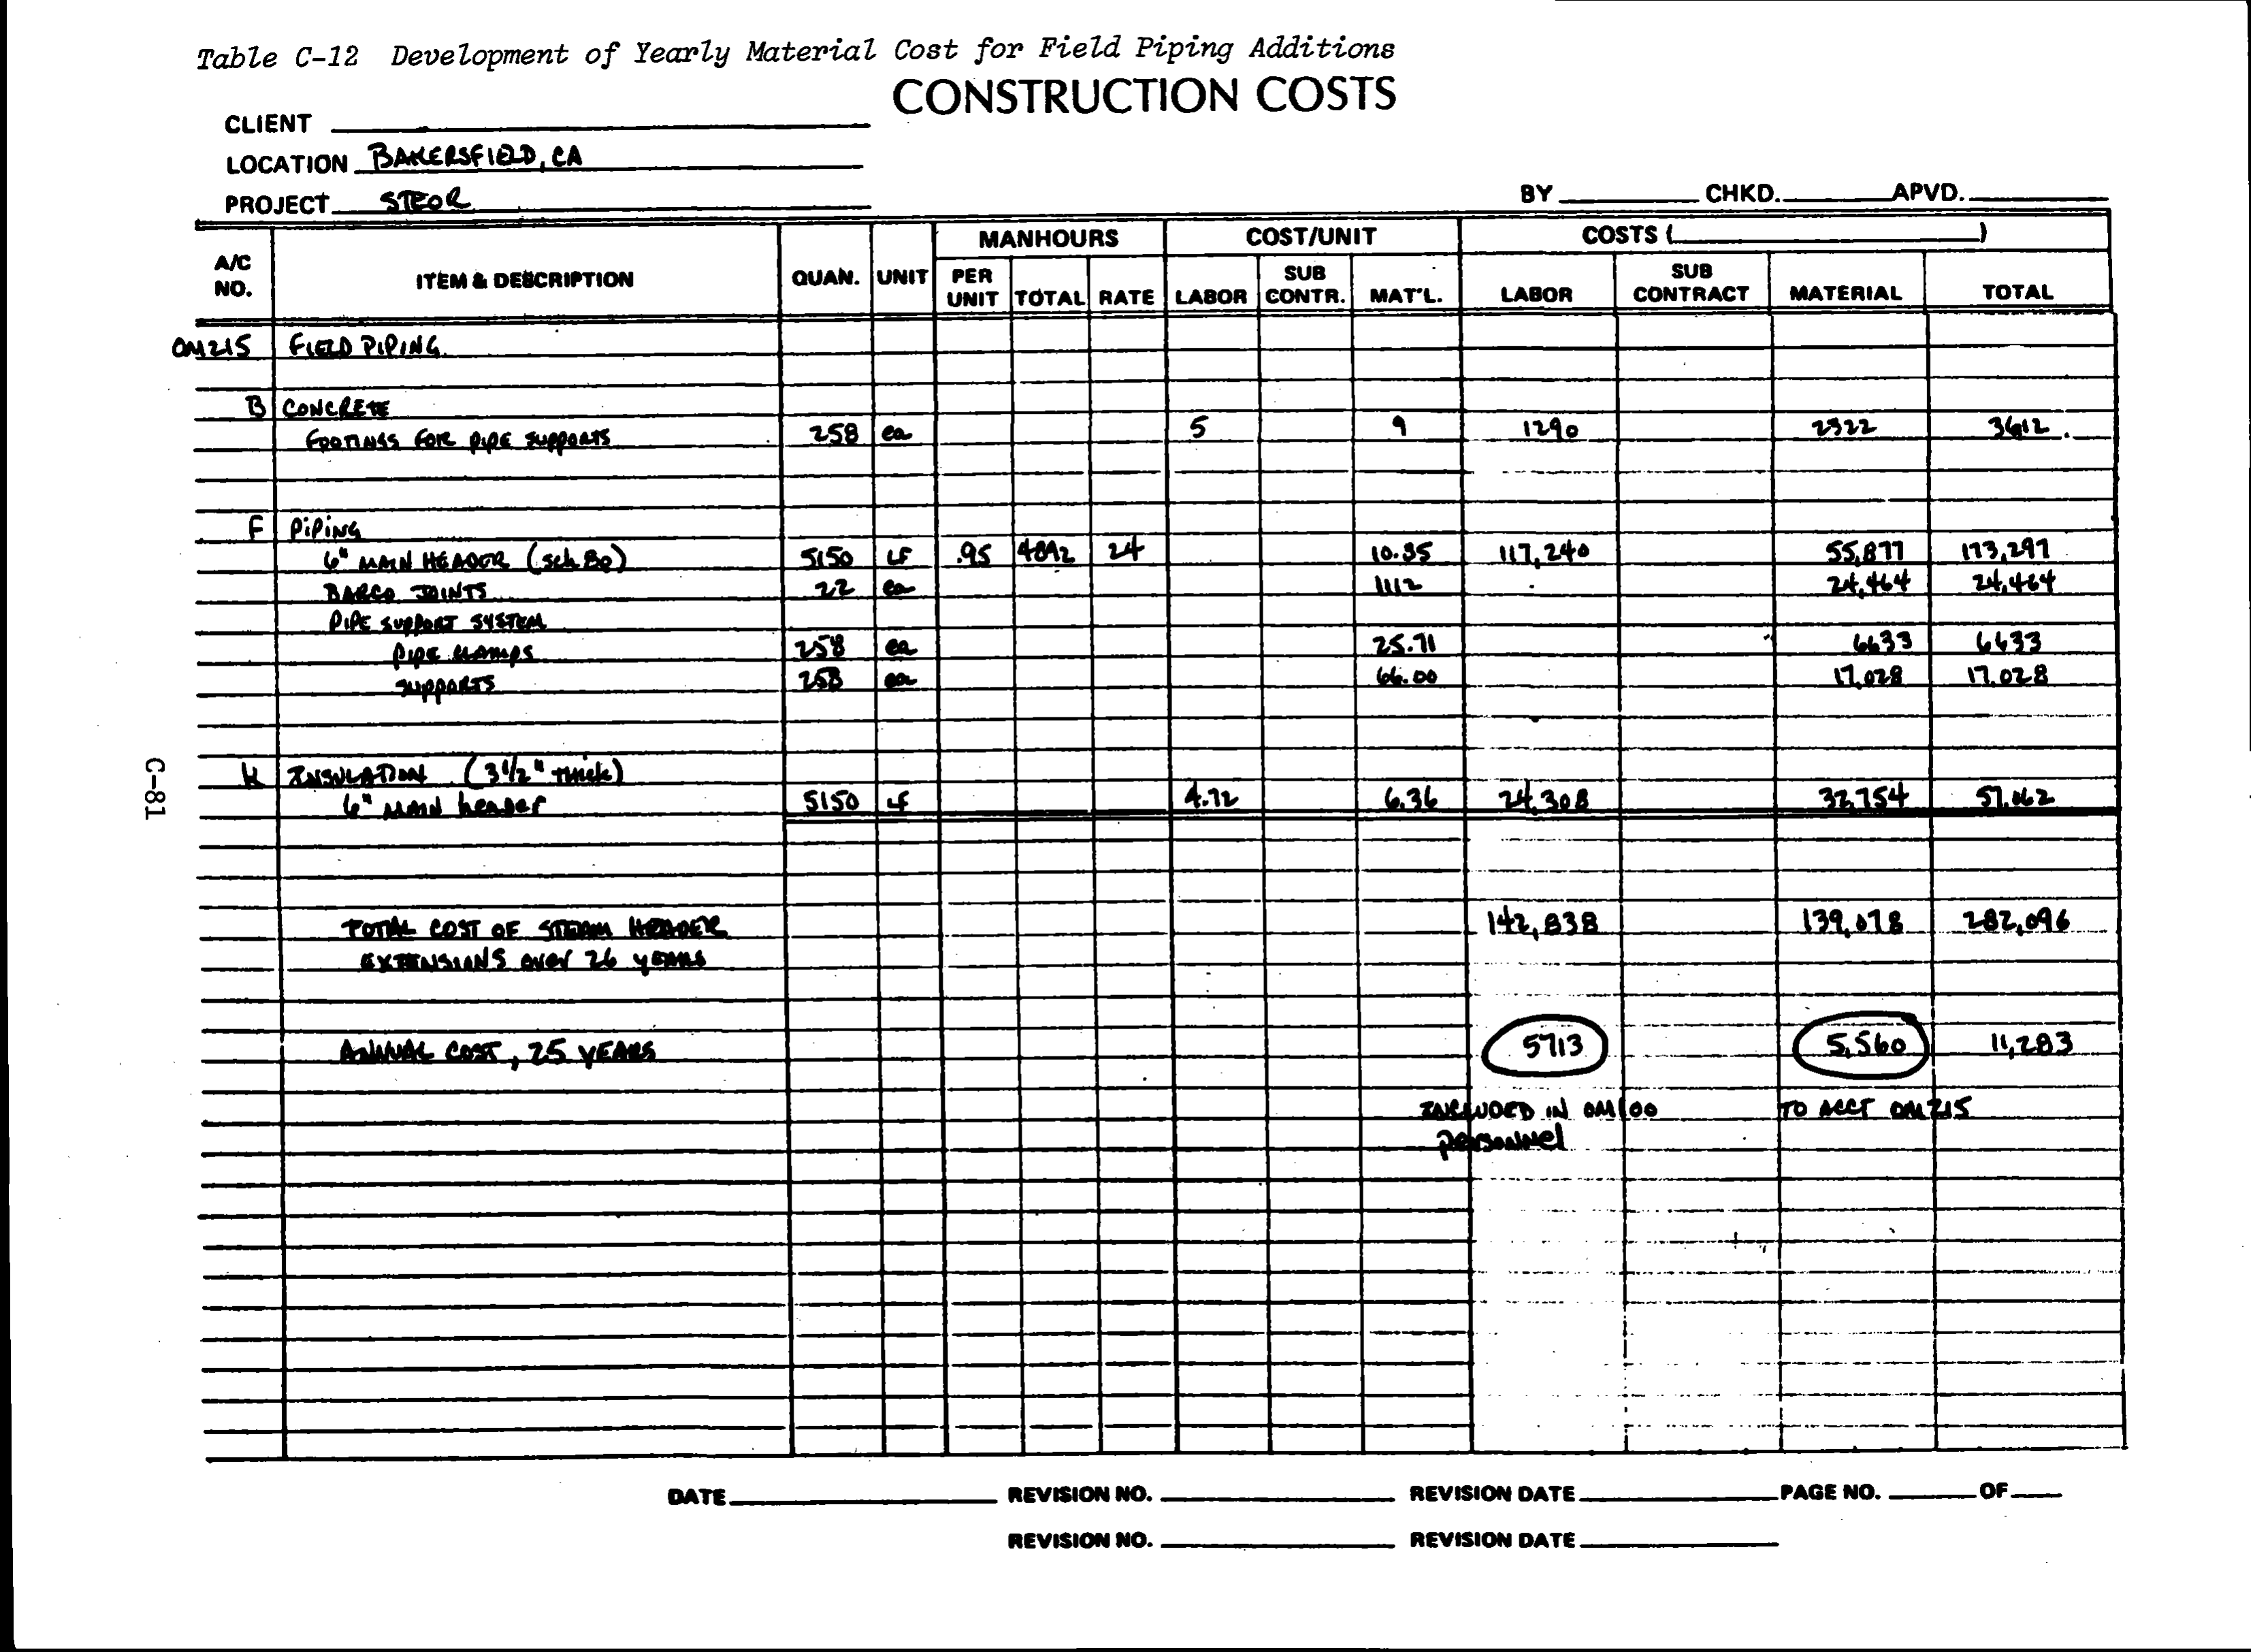 Table C-12 Development of Yearly Material Cost for Field Piping Additions
CONSTRUCTION COSTS
CLIENT
LOCATION BAKERSFIELD, CA
PROJECT STEOR
BY CHKD. APVD.
MANHOURS COST/UNIT COSTS ( )
A/C NO. ITEM & DESCRIPTION QUAN. UNIT PER UNIT TOTAL RATE LABOR SUB CONTR. MAT'L. LABOR SUB CONTRACT MATERIAL TOTAL
OM215 FIELD PIPING
B CONCRETE
FOOTINGS FOR PIPE SUPPORTS 258 ea 5 9 1290 2322 3612
F PIPING
6" MAIN HEADER (sch 80) 5150 LF .95 4892 24 10.85 117,240 55,877 173,297
BARCO JOINTS 22 ea 1112 24,464 24,464
PIPE SUPPORT SYSTEM
PIPE CLAMPS 258 ea 25.71 6633 6633
SUPPORTS 258 ea 66.00 17,028 17.028
K INSULATION (3 1/2" THICK)
6" MAIN header 5150 LF 4.72 6.36 24,308 32,754 57,062
TOTAL COST OF STEAM HEADER 142,838 139,078 282,096
EXTENSIONS over 26 YEARS
ANNUAL COST, 25 YEARS 5713 5,560 11,283
INCLUDED IN OM100 TO ACCT OM215
personnel
C-81
DATE REVISION NO. REVISION DATE PAGE NO. OF
REVISION NO. REVISION DATE